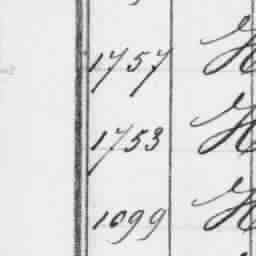 1757 H
1753 H
1099 H